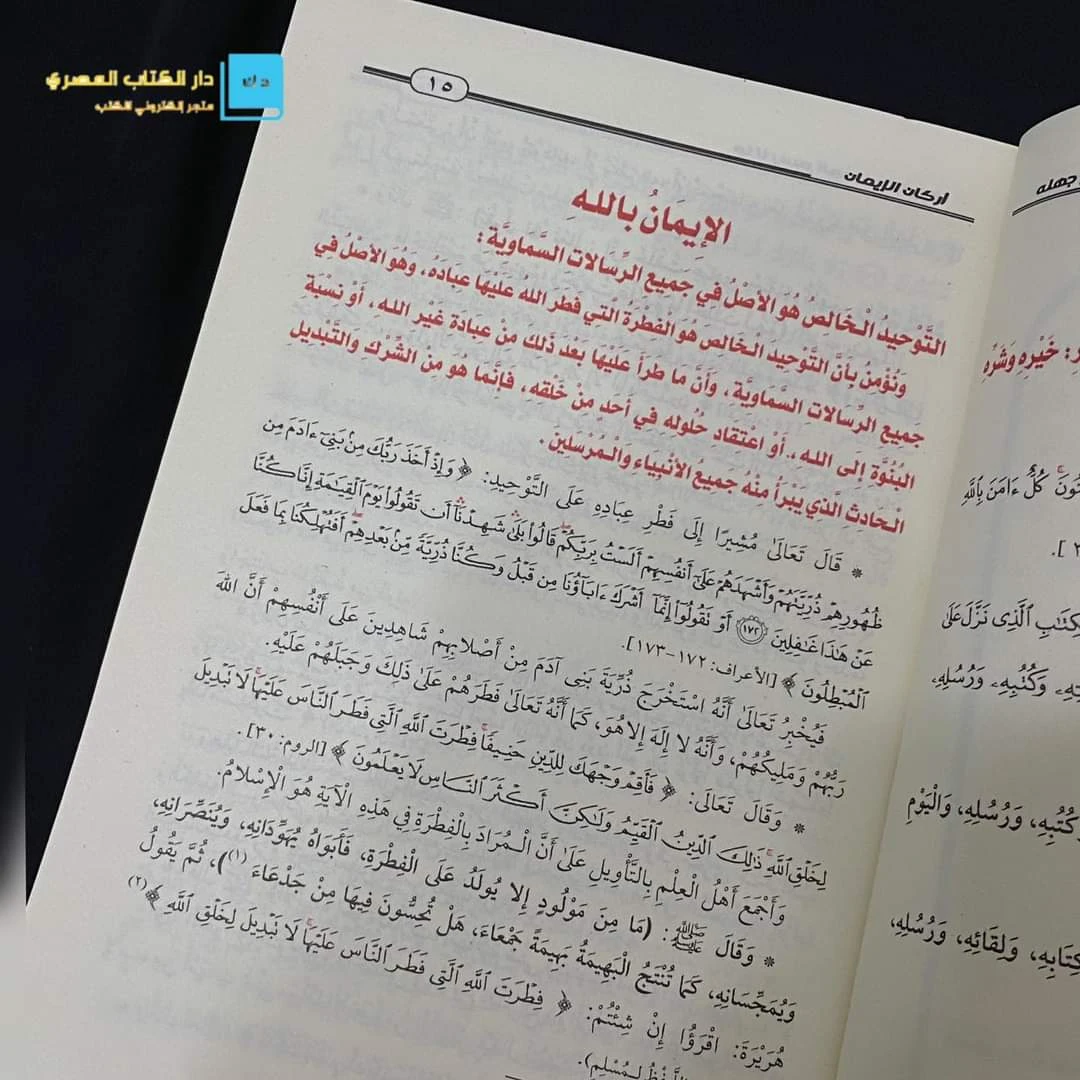 دار الكتاب المصري
متجر إلكتروني للكتب
دك
١٥
أركان الإيمان
الإِيمَانُ بِاللهِ
التَّوْحِيدُ الْخَالِصُ هُوَ الأَصْلُ فِي جَمِيعِ الرِّسَالاتِ السَّمَاوِيَّةِ :
وَنُؤْمِنُ بِأَنَّ التَّوْحِيدَ الْخَالِصَ هُوَ الْفِطْرَةُ الَّتِي فَطَرَ اللهُ عَلَيْهَا عِبَادَهُ، وَهُوَ الأَصْلُ فِي
جَمِيعِ الرِّسَالاتِ السَّمَاوِيَّةِ، وَأَنَّ مَا طَرَأَ عَلَيْهَا بَعْدَ ذَلِكَ مِنْ عِبَادَةِ غَيْرِ اللهِ، أَوْ نِسْبَةِ
الْبُنُوَّةِ إِلَى اللهِ، أَوْ اعْتِقَادِ حُلُولِهِ فِي أَحَدٍ مِنْ خَلْقِهِ، فَإِنَّمَا هُوَ مِنَ الشِّرْكِ وَالتَّبْدِيلِ
الْحَادِثِ الَّذِي يَبْرَأُ مِنْهُ جَمِيعُ الأَنْبِيَاءِ وَالْمُرْسَلِينَ .
* قَالَ تَعَالَىٰ مُشِيرًا إِلَى فَطْرِ عِبَادِهِ عَلَى التَّوْحِيدِ: ﴿ وَإِذْ أَخَذَ رَبُّكَ مِنۢ بَنِىٓ ءَادَمَ مِن
ظُهُورِهِمْ ذُرِّيَّتَهُمْ وَأَشْهَدَهُمْ عَلَىٰٓ أَنفُسِهِمْ أَلَسْتُ بِرَبِّكُمْ ۖ قَالُوا۟ بَلَىٰ ۛ شَهِدْنَآ ۛ أَن تَقُولُوا۟ يَوْمَ ٱلْقِيَٰمَةِ إِنَّا كُنَّا
عَنْ هَٰذَا غَٰفِلِينَ ﴿١٧٢﴾ أَوْ تَقُولُوٓا۟ إِنَّمَآ أَشْرَكَ ءَابَآؤُنَا مِن قَبْلُ وَكُنَّا ذُرِّيَّةً مِّنۢ بَعْدِهِمْ ۖ أَفَتُهْلِكُنَا بِمَا فَعَلَ
ٱلْمُبْطِلُونَ ﴾ [الأعراف: ١٧٢-١٧٣].
فَيُخْبِرُ تَعَالَىٰ أَنَّهُ اسْتَخْرَجَ ذُرِّيَّةَ بَنِى آدَمَ مِنْ أَصْلابِهِمْ شَاهِدِينَ عَلَى أَنْفُسِهِمْ أَنَّ اللهَ
رَبُّهُمْ وَمَلِيكُهُمْ، وَأَنَّهُ لا إِلَهَ إِلا هُوَ، كَمَا أَنَّهُ تَعَالَىٰ فَطَرَهُمْ عَلَىٰ ذَلِكَ وَجَبَلَهُمْ عَلَيْهِ.
* وَقَالَ تَعَالَىٰ: ﴿ فَأَقِمْ وَجْهَكَ لِلدِّينِ حَنِيفًا ۚ فِطْرَتَ ٱللَّهِ ٱلَّتِى فَطَرَ ٱلنَّاسَ عَلَيْهَا ۚ لَا تَبْدِيلَ
لِخَلْقِ ٱللَّهِ ۚ ذَٰلِكَ ٱلدِّينُ ٱلْقَيِّمُ وَلَٰكِنَّ أَكْثَرَ ٱلنَّاسِ لَا يَعْلَمُونَ ﴾ [الروم: ٣٠].
وَأَجْمَعَ أَهْلُ الْعِلْمِ بِالتَّأْوِيلِ عَلَىٰ أَنَّ الْمُرَادَ بِالْفِطْرَةِ فِي هَذِهِ الْآيَةِ هُوَ الْإِسْلامُ.
* وَقَالَ ﷺ: (مَا مِنَ مَوْلُودٍ إِلا يُولَدُ عَلَى الْفِطْرَةِ، فَأَبَوَاهُ يُهَوِّدَانِهِ، وَيُنَصِّرَانِهِ،
وَيُمَجِّسَانِهِ، كَمَا تُنْتَجُ الْبَهِيمَةُ بَهِيمَةً جَمْعَاءَ، هَلْ تُحِسُّونَ فِيهَا مِنْ جَدْعَاءَ (١))، ثُمَّ يَقُولُ
هُرَيْرَةَ: اقْرَؤُا إِنْ شِئْتُمْ: ﴿ فِطْرَتَ ٱللَّهِ ٱلَّتِى فَطَرَ ٱلنَّاسَ عَلَيْهَا ۚ لَا تَبْدِيلَ لِخَلْقِ ٱللَّهِ ﴾ (٢)
لِمُسْلِمٍ).
جهله
خَيْرِهِ وَشَرِّهِ
كُلٌّ ءَامَنَ بِٱللَّهِ
].
ٱلَّذِى نَزَّلَ عَلَىٰ
وَكُتُبِهِۦ وَرُسُلِهِۦ
كُتُبِهِ، وَرُسُلِهِ، وَالْيَوْمِ
وَلِقَائِهِ، وَرُسُلِهِ،